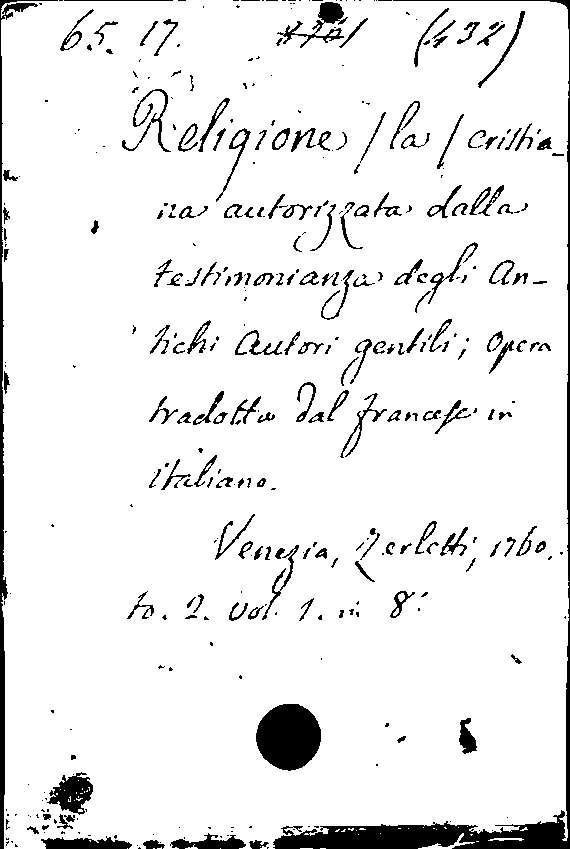 65. 17. (432)
Religione / la / cristia-
na autorizzata dalla
testimonianza degli An-
tichi Autori gentili; Opera
tradotta dal francese in
italiano.
Venezia, Zerletti, 1760.
to. 2. vol. 1. in 8: